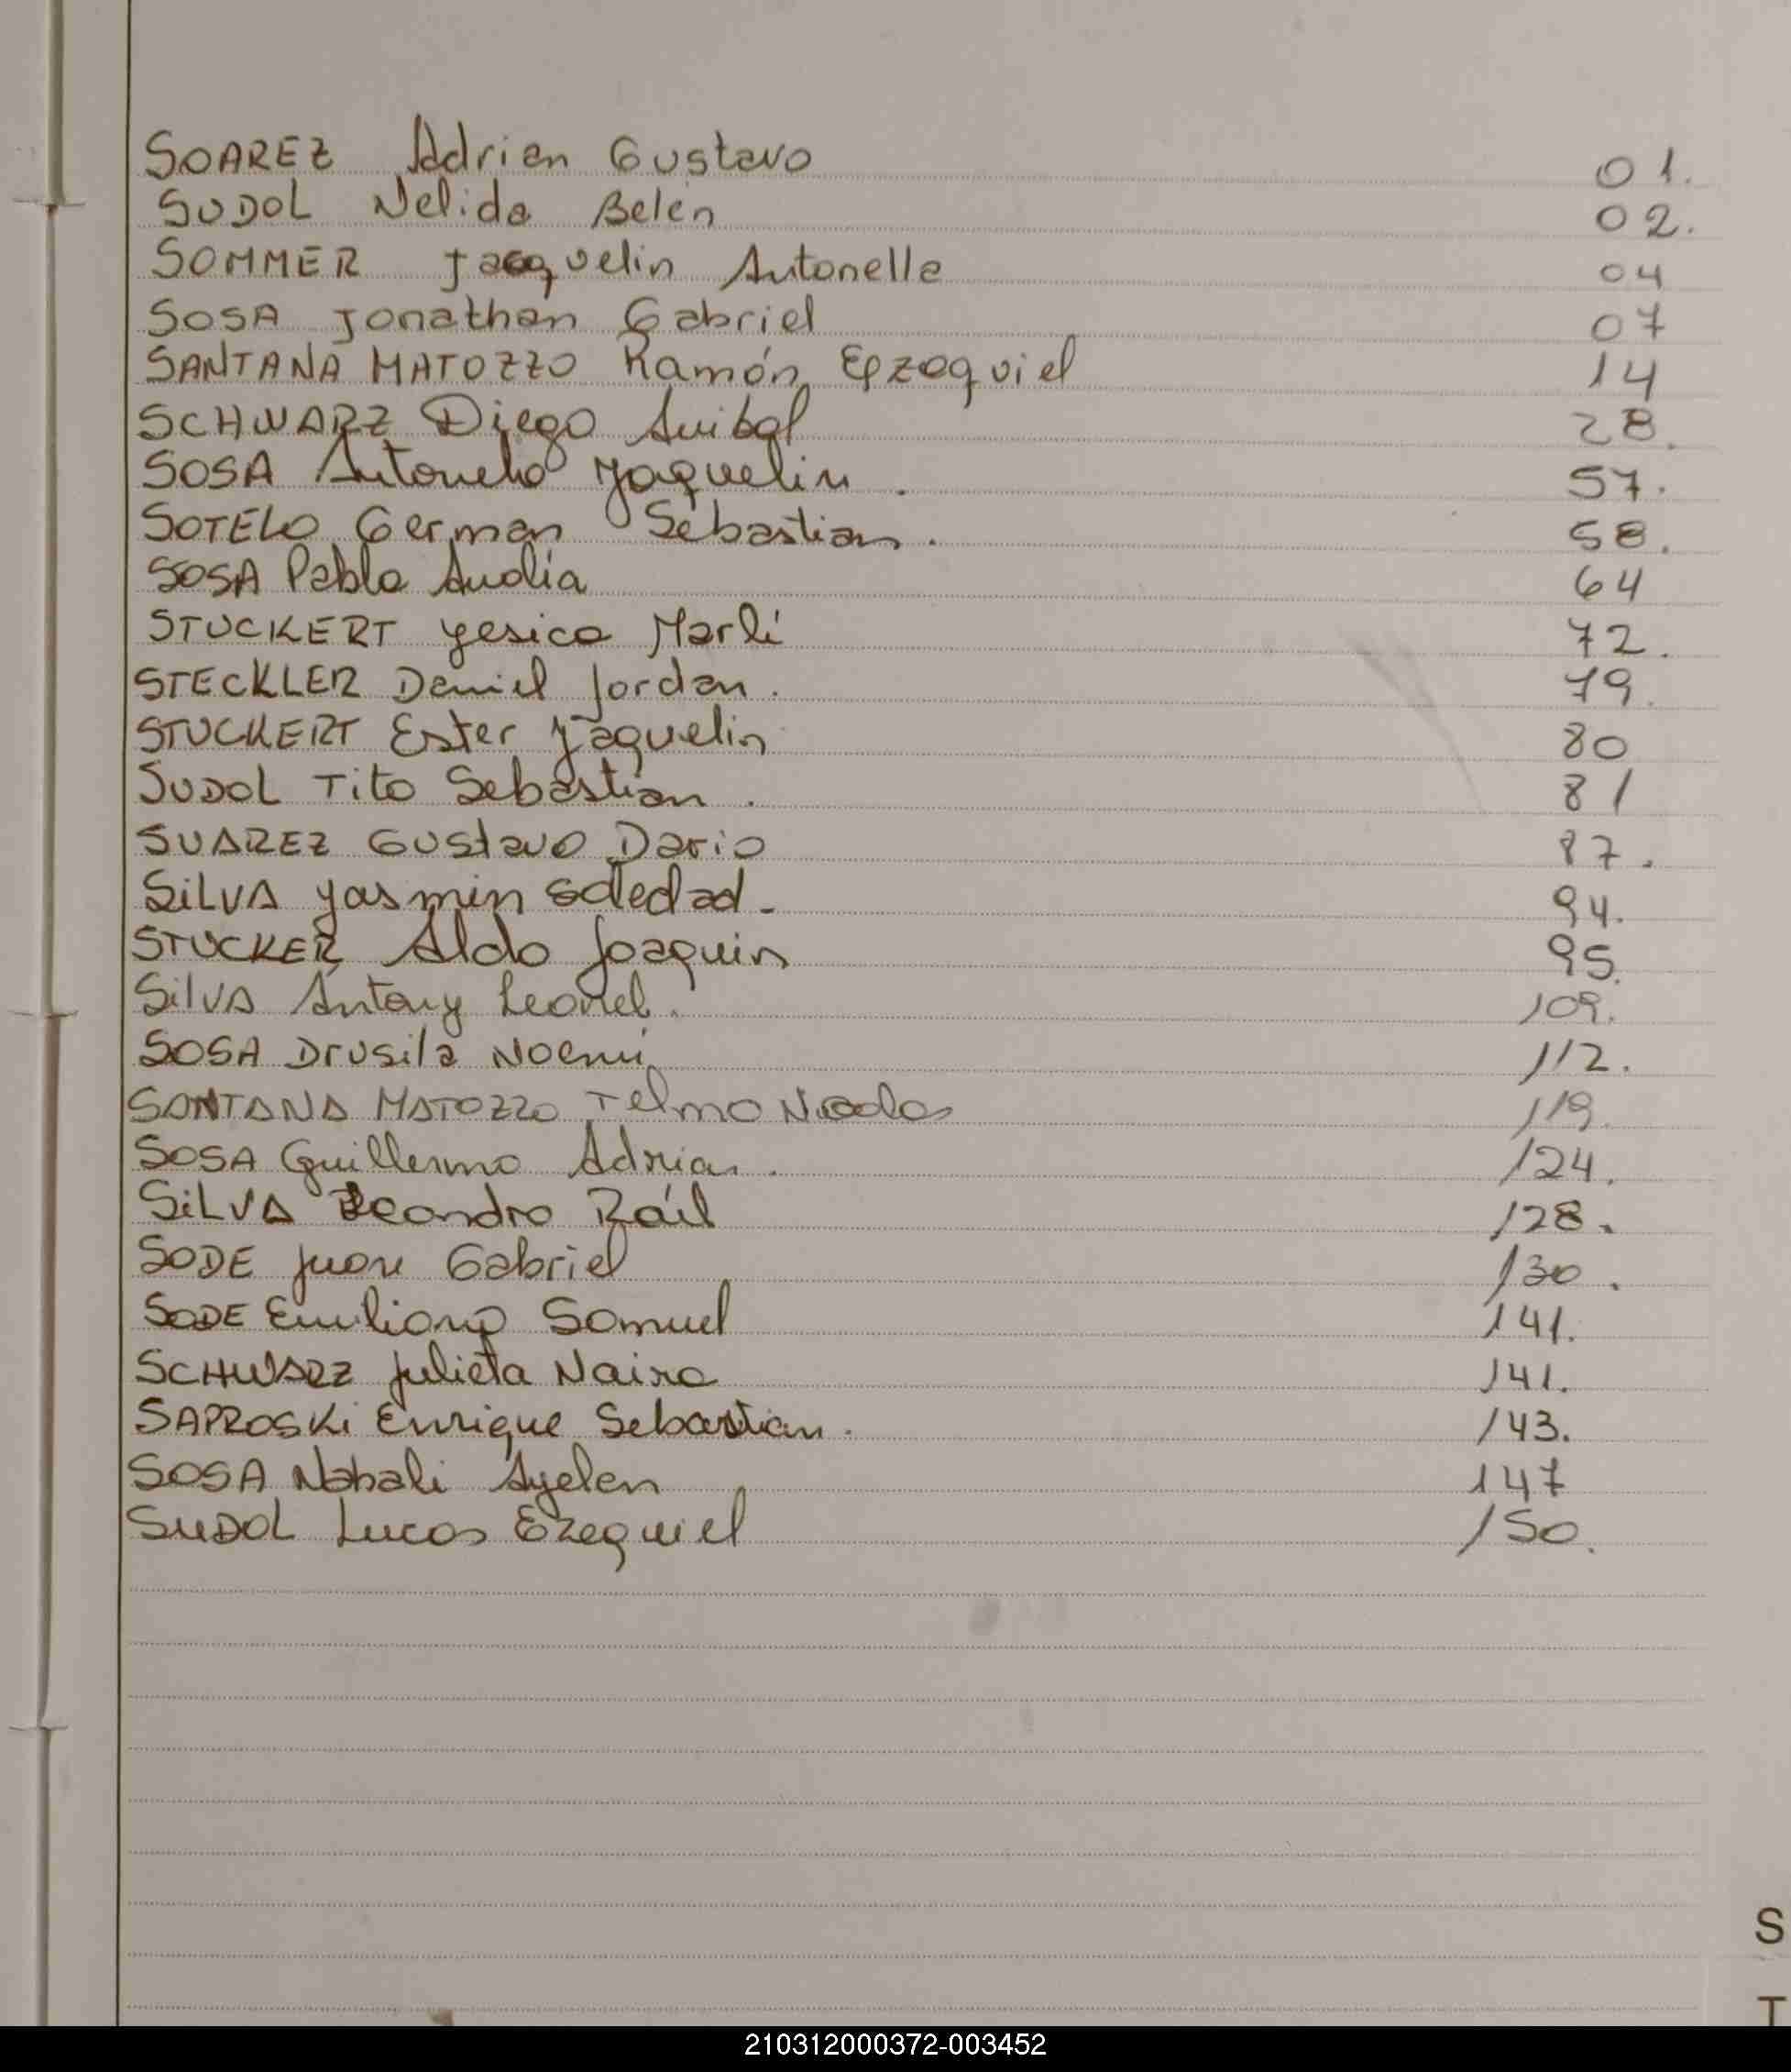 SOAREZ Adrian Gustavo 01.
SUDOL Nelida Belén 02.
SOMMER Jacquelin Antonella 04
SOSA Jonathan Gabriel 07
SANTANA MATOZZO Ramón 14
SCHWARZ Diego Anibal 28.
SOSA Antonella Yaquelin. 57.
SOTELO German Sebastian. 58.
SOSA Pablo 64
STUCKERT Yesica Marlí 72.
STECKLER Daniel Jordan. 79.
STUCKERT Ester Yaquelin 80
SUDOL Tito Sebastian. 81
SUAREZ Gustavo Dario 87.
SILVA Yasmin Soledad. 94.
STUCKER Aldo Joaquin 95.
Silva Antony Leonel. 109.
SOSA Drusila Noemí 112.
SANTANA MATOZZO Telmo Nicolas 119.
SOSA Guillermo Adrian. 124.
SiLVA Leandro Raúl 128.
SODE Juan Gabriel 130.
SODE Emiliano Samuel 141.
SCHWARZ Julieta Naira 141.
SAPROSKi Enrique Sebastian. 143.
SOSA Ayelen 147
SUDOL Lucas Ezequiel 150.
S
T
210312000372-003452